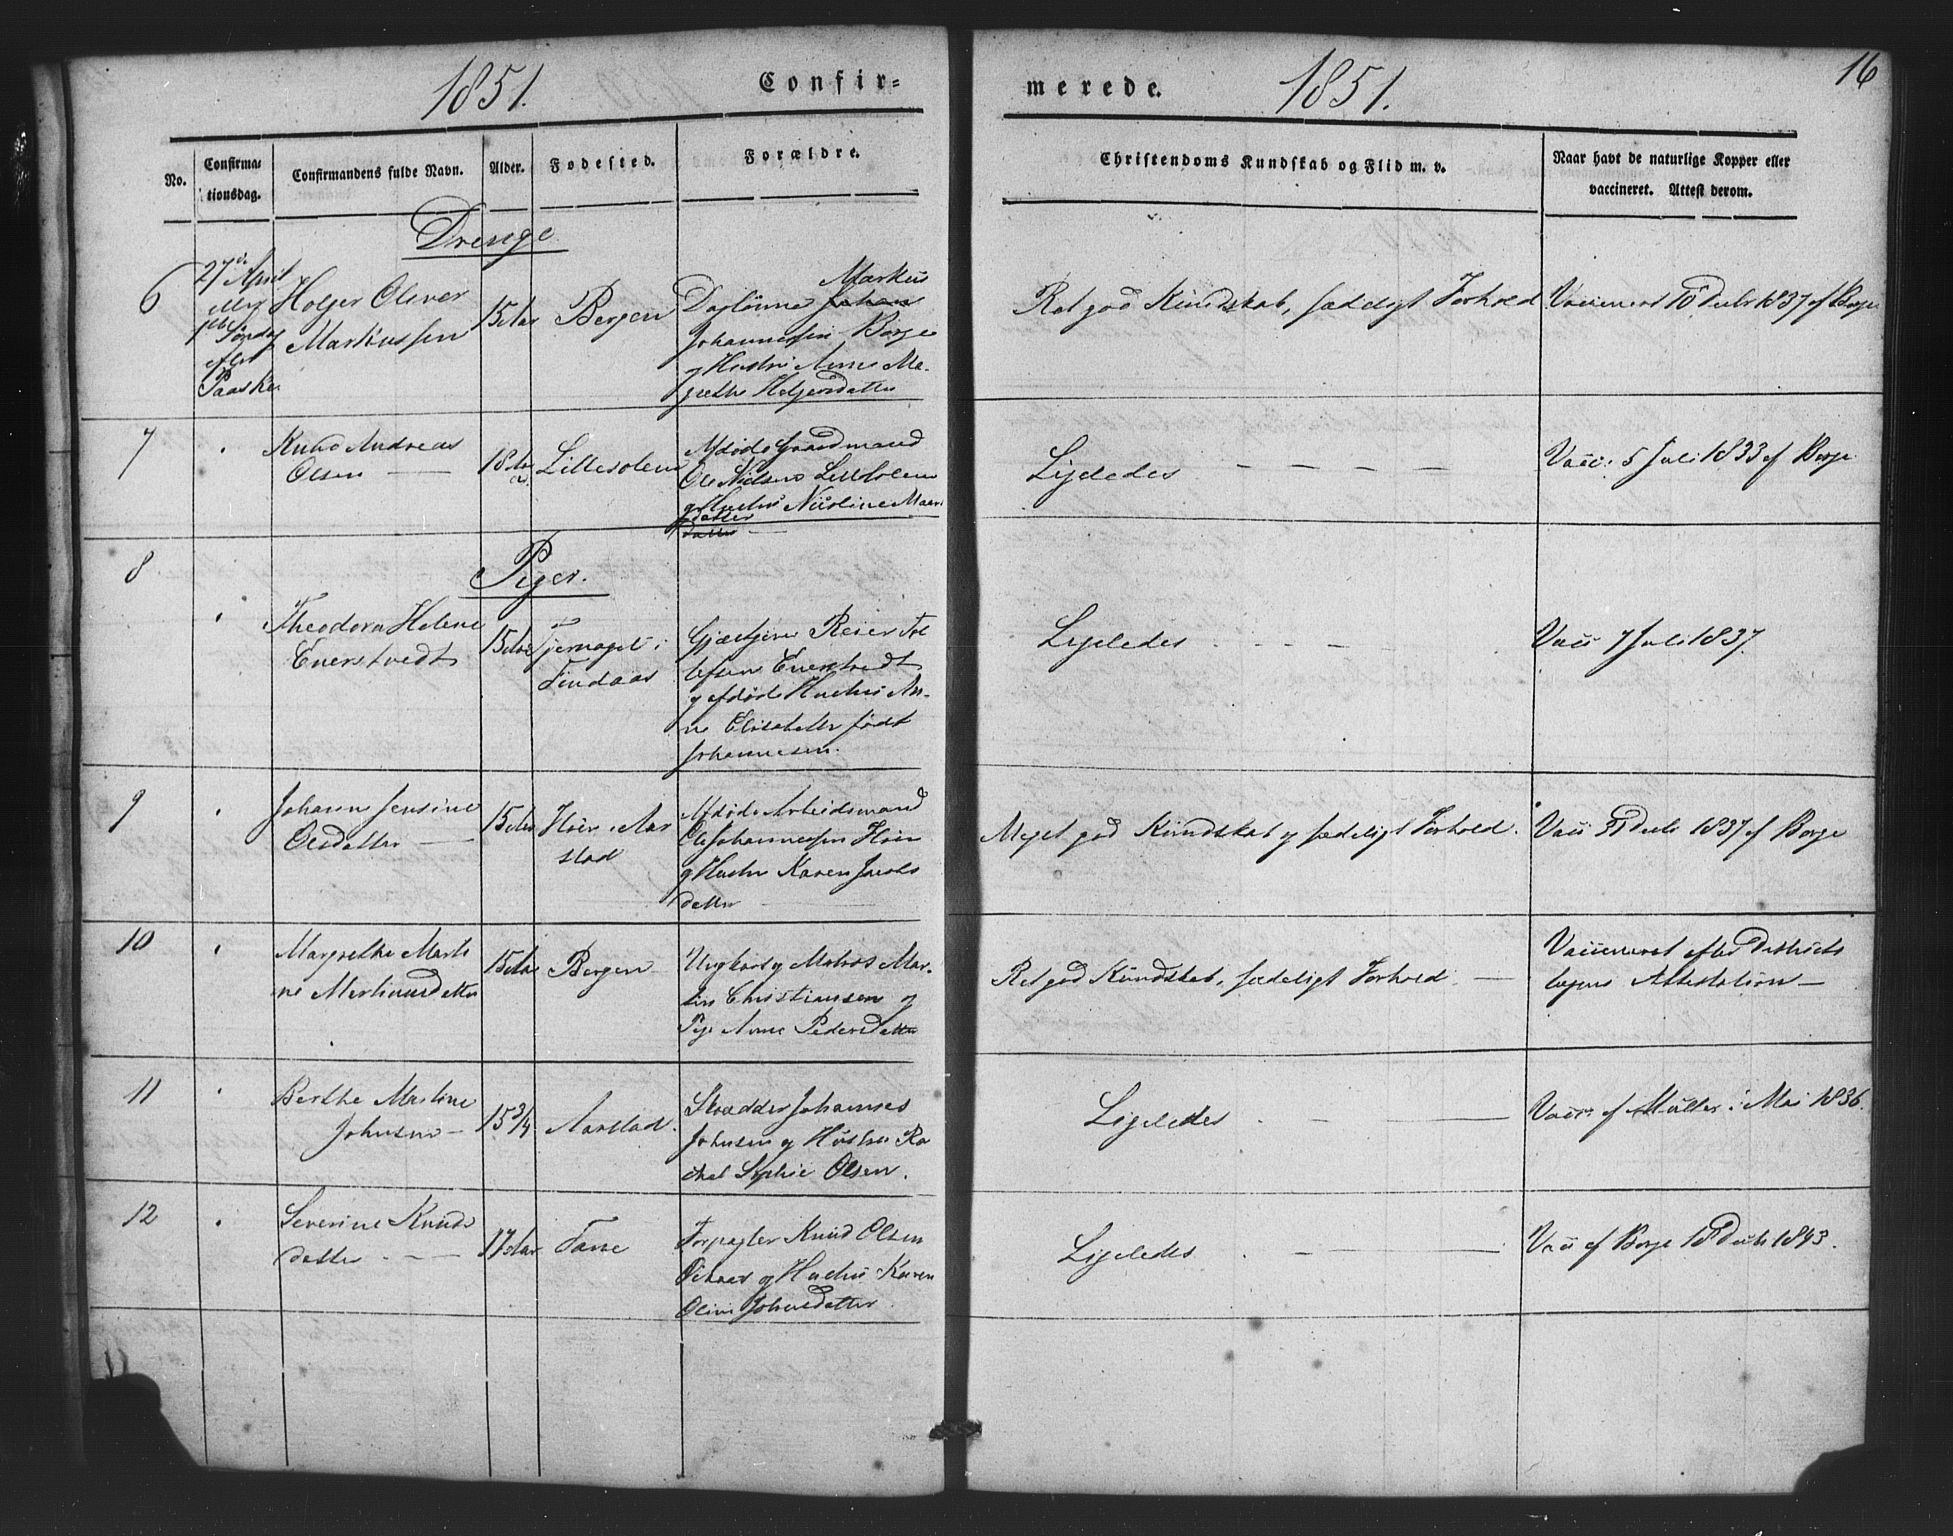 1851. Confir-
merede. 1851. 16
No. Confirma-tionsdag. Confirmandens fulde Navn. Alder. Fødested. Forældre.
Christendoms Kundskab og Flid m. v. Naar havt de naturlige Kopper eller vaccineret. Attest derom.
Drenge
6 27de April
Søndag
efter
Paaske
Holger Oliver
Markussen
15 Aar
Bergen
Markus
Daglønner Johan
Johannessen Borge
og Hustru Anne Ma-
grethe Holgersdatter
Ret god Kundskab, sædeligt Forhold
Vaccineret 10 Decbr 1837 af Borge
7 " Knud Andreas
Olsen —
18
Lillesolem
Afdøde Gaardmand
Ole Nielsen Lillesolem
og Hustru Nicoline
datter
datter —
Ligeledes — — — — —
Vacc: 5 Juli 1833 af Borge
8
Piger.
" Theodora Helene
Enerstvedt
15 Aar
Tjernaget i
Findaas
Gjæstgiver Reier Tol
lefsen Enerstvedt
og afdøde Hustru An-
ne Elisabeth født
Johannesen.
Ligeledes
Vacc 7 Juli 1837.
9 " Johanne Jensine
Olsdatter —
15 Aar
i Aar
stad
Afdøde Arbeidsmand
Ole Johannessen
og Hustru Karen Jacobs
datter
Meget god Kundskab og sædeligt Forhold.
Vacc Decbr 1837 af Borge
10 " Margrethe Marti
ne Martinusdatter
15 Aar
Bergen
Ungkarl og Matros Mar-
tin Christiansen og
Pige Anne Pedersdatter
Ret god Kundskab, sædeligt Forhold —
Vaccineret efter Districts
lægens Attestation —
11 " Berthe Martine
Johnsen —
15 3/4
Aarstad.
Skrædder Johannes
Johnsen og Hustru Ra
chel Sophie Olsen.
Ligeledes
Vacc: af Müller i Mai 1836.
12 " Severine Knuds
datter —
17 Aar
Fane
Forpagter Knud Olsen
og Hustru Karen
Oline Johnsdatter.
Ligeledes
Vacc af Borge 18 Decbr 1843.